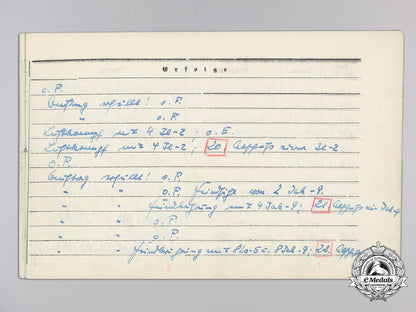 Erfolge
o. F.
Auftrag erfüllt! o. F.
" o. F.
Luftkampf mit 4 Je-2; o. E.
Luftkampf mit 4 Je-2; 20. Abschuß einer Je-2.
o. F.
Auftrag erfüllt! o. F.
" " o. F. von 2 Jak-9.
" " Feindberührung mit 4 Jak-9; 21. Abschuß ein Jak-9
" " o. F.
" " o. F.
" " Feindberührung mit 8 La-5 u. 8 Jak-9; 22. Abschuß
eMedals